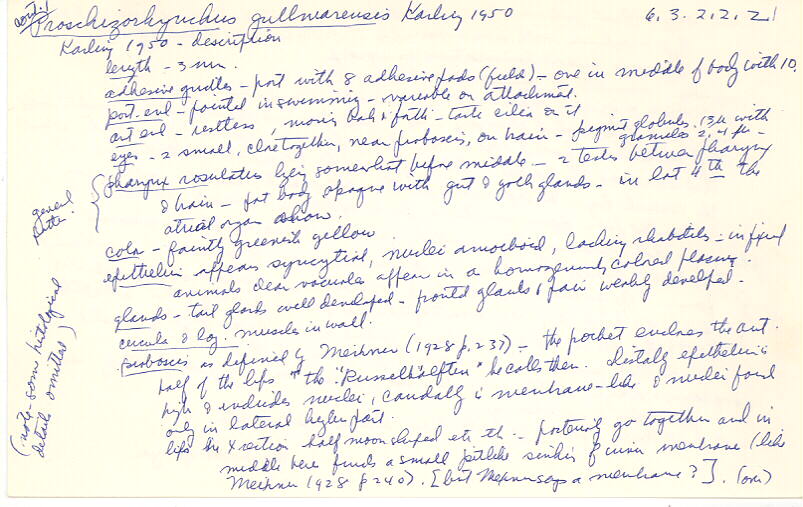 cont.
Proschizorhynchus gullmarensis Karling 1950 6.3.2.2.2
Karling 1950 - description
length - 3 mm.
adhesive girdles - post with 8 adhesive pads (fields) - one in middle of body with 10.
post. end - pointed in swimming - variable on attachment.
ant end - restless, moving back & forth - taste cilia on it
eyes - 2 small, close together, near proboscis, on brain - pigment globules .13µ with
granules 2.4µ -
pharynx rosulatus lying somewhat before middle - 2 testes between pharynx
& brain - fat body opaque with gut & yolk glands - in last 4th the
atrial organ show.
general
color - faintly greenish yellow
epithelium appears syncytial, nuclei amoeboid, lacking rhabdites - in fixed
animals clear vacuoles appear in a homogeneously colored plasm.
glands - tail glands well developed - frontal glands 1 pair weakly developed.
circular & log. muscles in wall.
proboscis as defined by Meixner (1928 p.237) - the pocket encloses the ant.
half of the lips of the "Russelhälften" he calls them. distally epithelium is
high & includes nuclei, caudally is membrane-like & nuclei found
only in lateral higher part.
lips the X section half moon shaped etc. - posteriorly go together and in
middle here finds a small pitlike sinking of inner membrane (like
Meixner 1928 p.240). [but Meixner says a membrane?]. (over)
(note - some histological
details omitted)